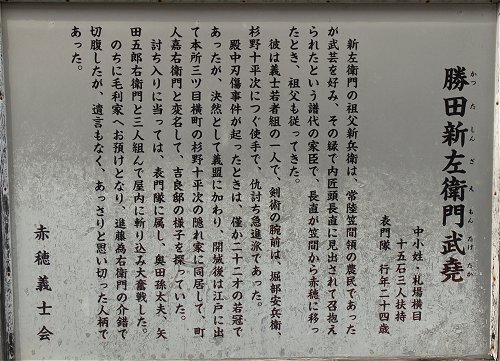 勝田新左衛門武堯
かつたしんざえもんたけたか
中小姓・札場横目
十五石三人扶持
表門隊 行年二十四歳
新左衛門の祖父新兵衛は、常陸笠間領の農民であった
が武芸を好み、その縁で内匠頭長直に見出されて召抱え
られたという譜代の家臣で、長直が笠間から赤穂に移っ
たとき、祖父も従ってきた。
彼は義士若者組の一人で、剣術の腕前は、堀部安兵衛、
杉野十平次につぐ使手で、仇討ち急進派であった。
殿中刃傷事件が起ったときは、僅か二十二才の若冠で
あったが、決然として義盟に加わり、開城後は江戸に出
て本所三ツ目横町の杉野十平次の隠れ家に同居して、町
人嘉右衛門と変名して、吉良邸の様子を探っていた。
討ち入りに当っては、表門隊に属し、奥田孫太夫、矢
田五郎右衛門と三人組んで屋内に斬り込み大奮戦した。
のちに毛利家へお預けとなり、進藤為右衛門の介錯で
切腹したが、遺言もなく、あっさりと思い切った人柄で
あった。
赤穂義士会